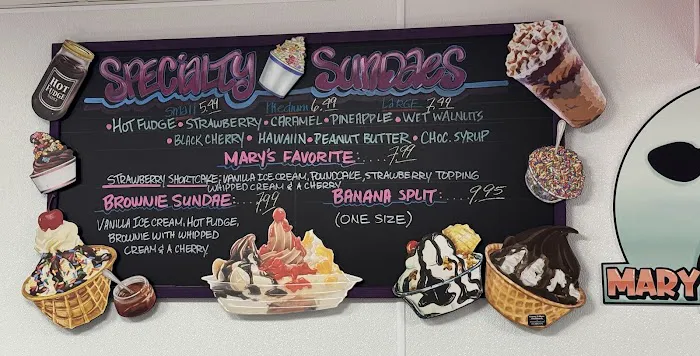 SPECIALTY SUNDAES
Small 5.49 Medium 6.49 LARGE 7.49
• HOT FUDGE • STRAWBERRY • CARAMEL • PINEAPPLE • WET WALNUTS
• BLACK CHERRY • HAWAIIN • PEANUT BUTTER • CHOC. SYRUP
MARY'S FAVORITE:.....7.99
STRAWBERRY SHORTCAKE; VANILLA ICE CREAM, POUNDCAKE, STRAWBERRY TOPPING
WHIPPED CREAM & A CHERRY
BROWNIE SUNDAE:....7.99
VANILLA ICE CREAM, HOT FUDGE,
BROWNIE WITH WHIPPED
CREAM & A CHERRY
BANANA SPLIT:....9.95
(ONE SIZE)
HOT
FUDGE
MARY